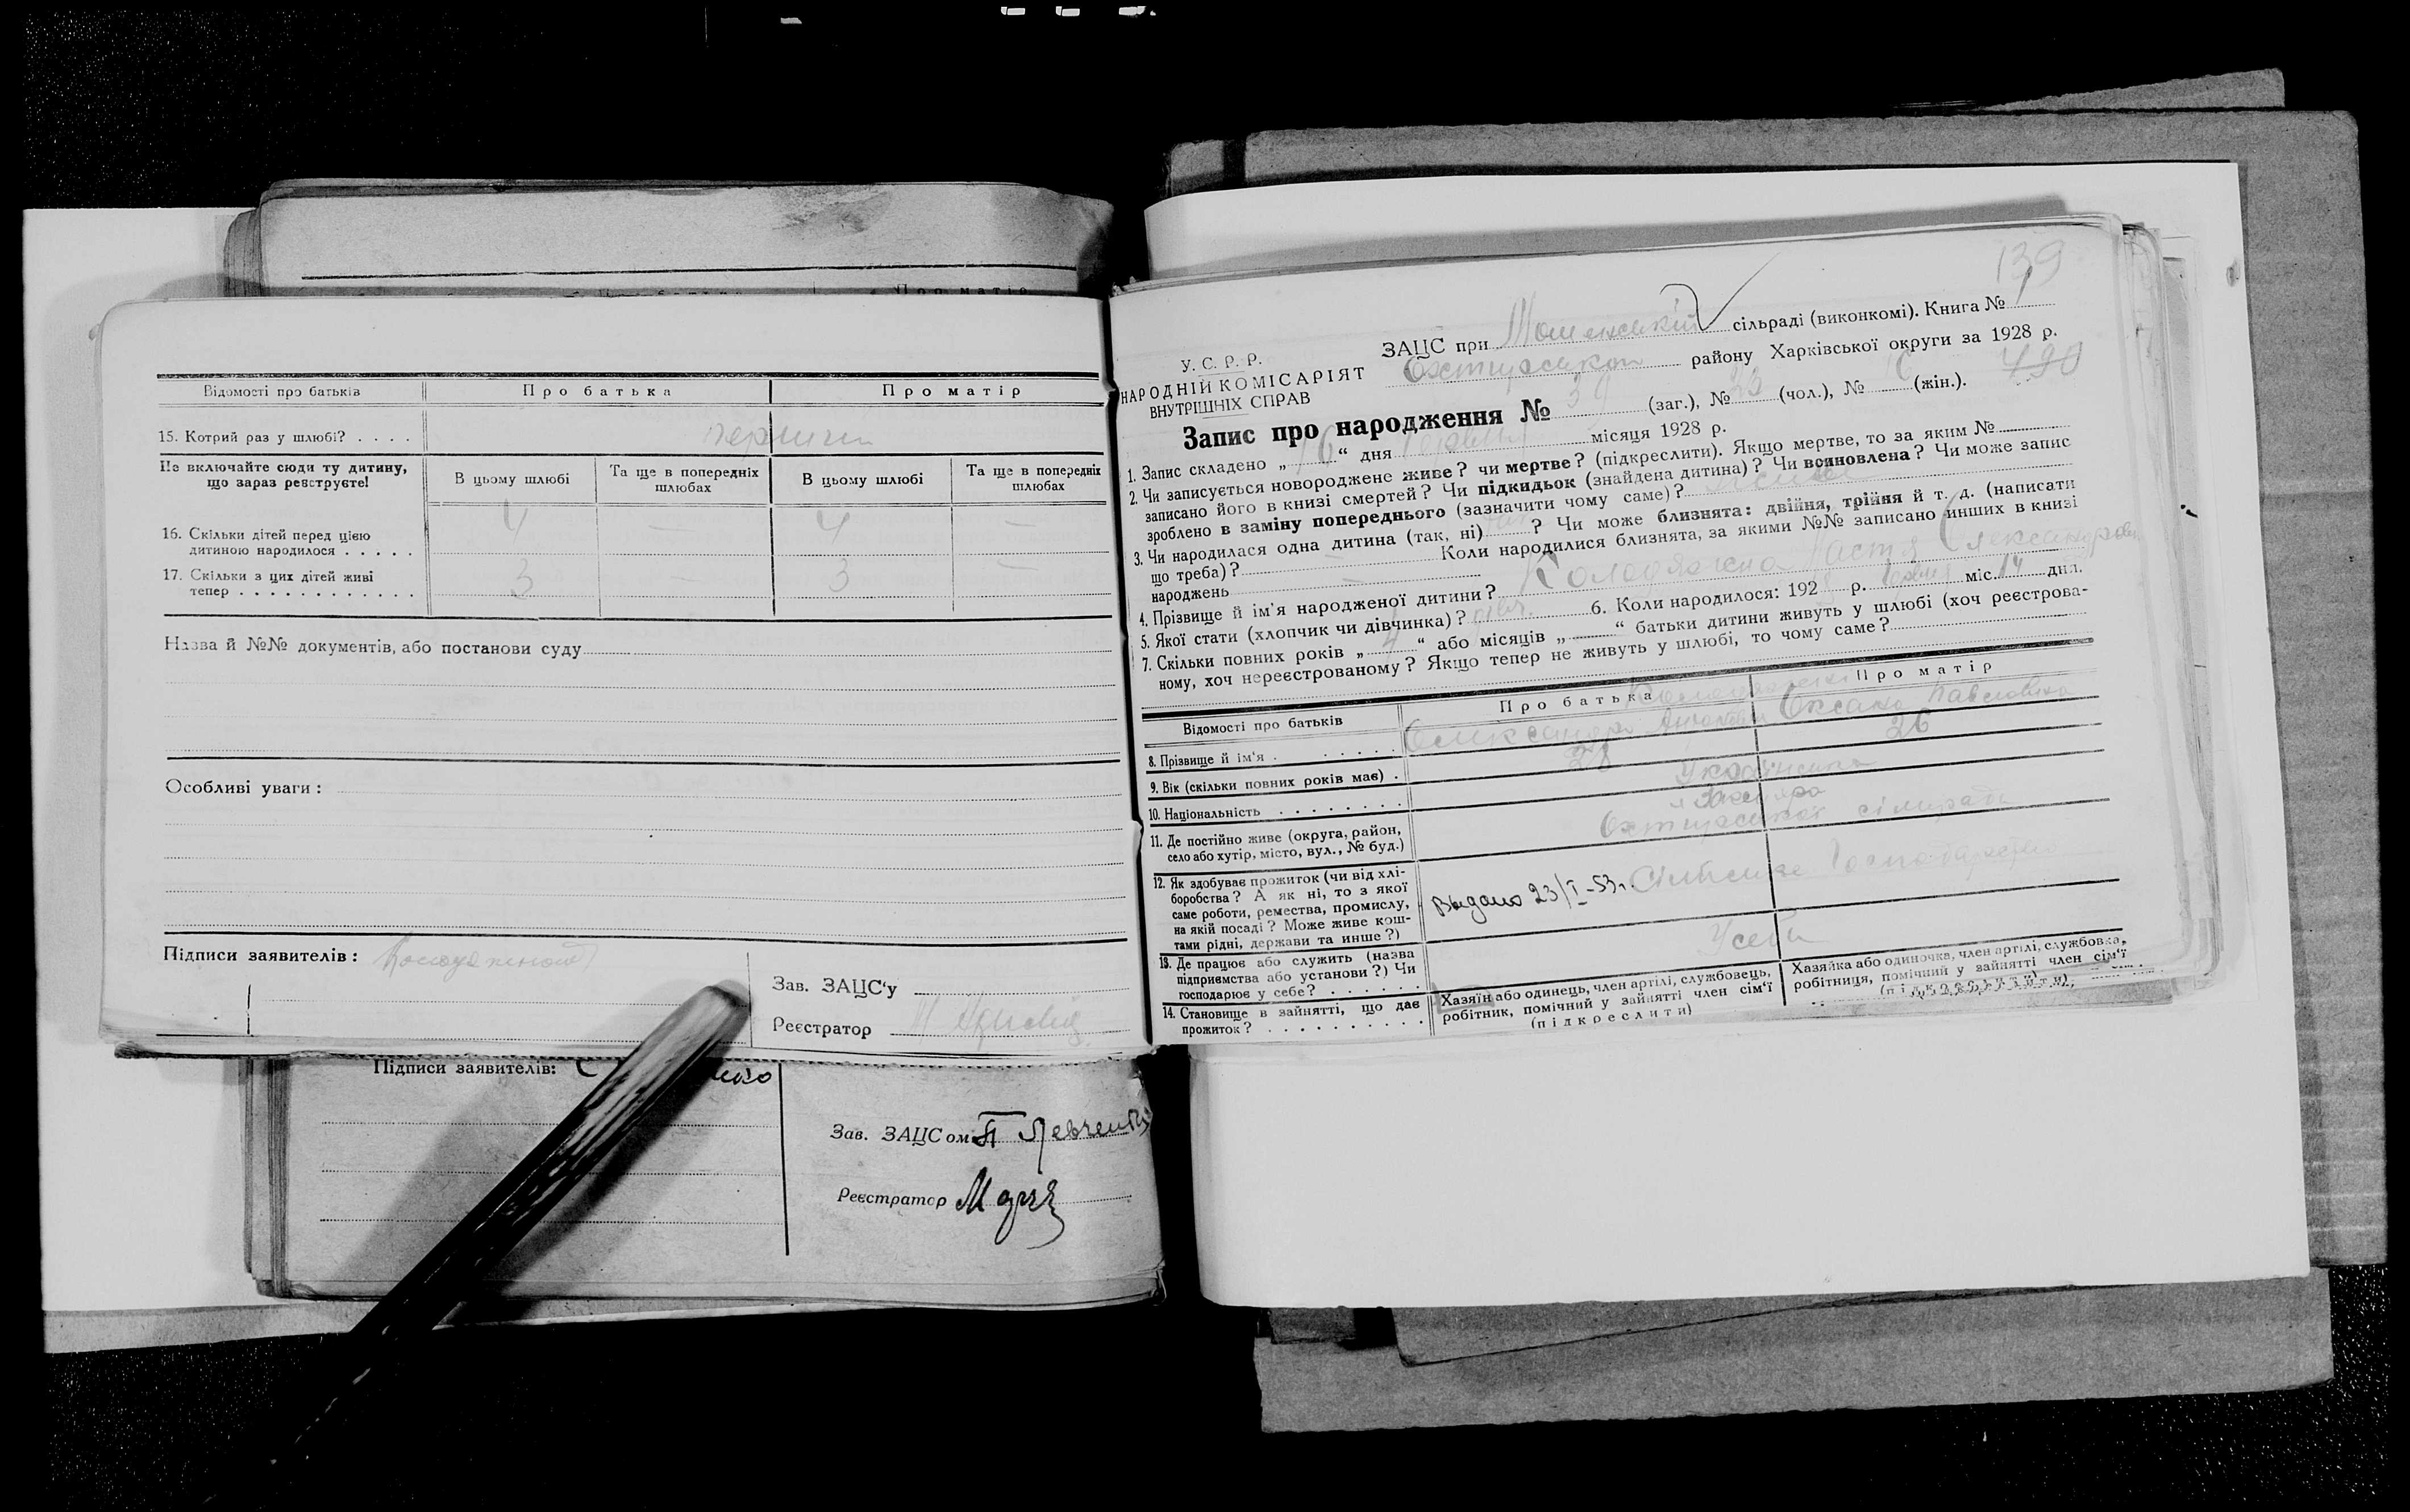 Про матір
Відомості про батьків
Про батька
Про матір
15. Котрий раз у шлюбі? . . . .
Не включайте сюди ту дитину,
що зараз реєструєте!
В цьому шлюбі
Та ще в попередніх
шлюбах
В цьому шлюбі
Та ще в попередніх
шлюбах
16. Скільки дітей перед цією
дитиною народилося . . . . .
4 — 4 —
17. Скільки з цих дітей живі
тепер . . . . . . . . . . . .
3 — 3 —
Назва й №№ документів, або постанови суду
Особливі уваги :
Підписи заявителів :
Зав. ЗАЦС'у
Реєстратор
Підписи заявителів:
Зав. ЗАЦСом П Левченко
Реєстратор
139
У. С. Р. Р.
НАРОДНІЙ КОМІСАРІЯТ
ВНУТРІШНІХ СПРАВ
ЗАЦС при сільраді (виконкомі). Книга № 1
району Харківської округи за 1928 р.
490
Запис про народження № 39 (заг.), № 33 (чол.), № (жін.).
1. Запис складено „ 16 “ дня місяця 1928 р.
2. Чи записується новороджене живе? чи мертве? (підкреслити). Якщо мертве, то за яким №
записано його в книзі смертей? Чи підкидьок (знайдена дитина)? Чи всиновлена? Чи може запис
зроблено в заміну попереднього (зазначити чому саме)?
3. Чи народилася одна дитина (так, ні) ? Чи може близнята: двійня, трійня й т. д. (написати
що треба)? — Коли народилися близнята, за якими №№ записано инших в книзі
народжень —
4. Прізвище й ім'я народженої дитини? Колодяжна Настя Олександровна
5. Якої стати (хлопчик чи дівчинка)? дівч. 6. Коли народилось: 1928 р. міс. 14 дня.
7. Скільки повних років „ 4 “ або місяців „ “ батьки дитини живуть у шлюбі (хоч реєстрова-
ному, хоч нереєстрованому? Якщо тепер не живуть у шлюбі, то чому саме?
Відомості про батьків
Про батька
Про матір
8. Прізвище й ім'я . . . . . .
Оксана Павловна
9. Вік (скільки повних років має) .
28 26
10. Національність . . . . . . . .
11. Де постійно живе (округа, район,
село або хутір, місто, вул., № буд.)
12. Як здобуває прожиток (чи від хлі-
боробства? А як ні, то з якої
саме роботи, ремества, промислу,
на якій посаді? Може живе кош-
тами рідні, держави та инше?)
Выдано 23/I-53г. Сільське господарство
13. Де працює або служить (назва
підприємства або установи?) Чи
господарює у себе? . . . . . .
У себе
14. Становище в зайнятті, що дає
прожиток? . . . . . . . . . .
Хазяїн або одинець, член артілі, службовець,
робітник, помічний у зайнятті член сім'ї
(підкреслити)
Хазяйка або одиночка, член артілі, службовка,
робітниця, помічний у зайнятті член сім'ї
(підкреслити)